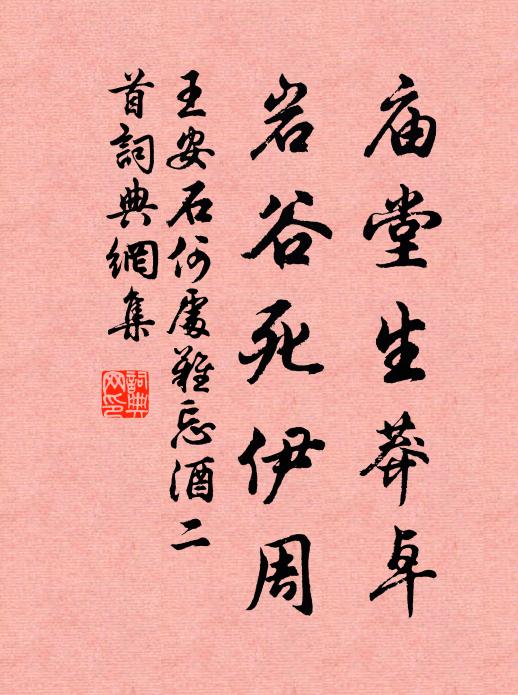 庙堂生莽卓
岩谷死伊周
王安石何處難忘酒二
首詞典網集
詞典
网印